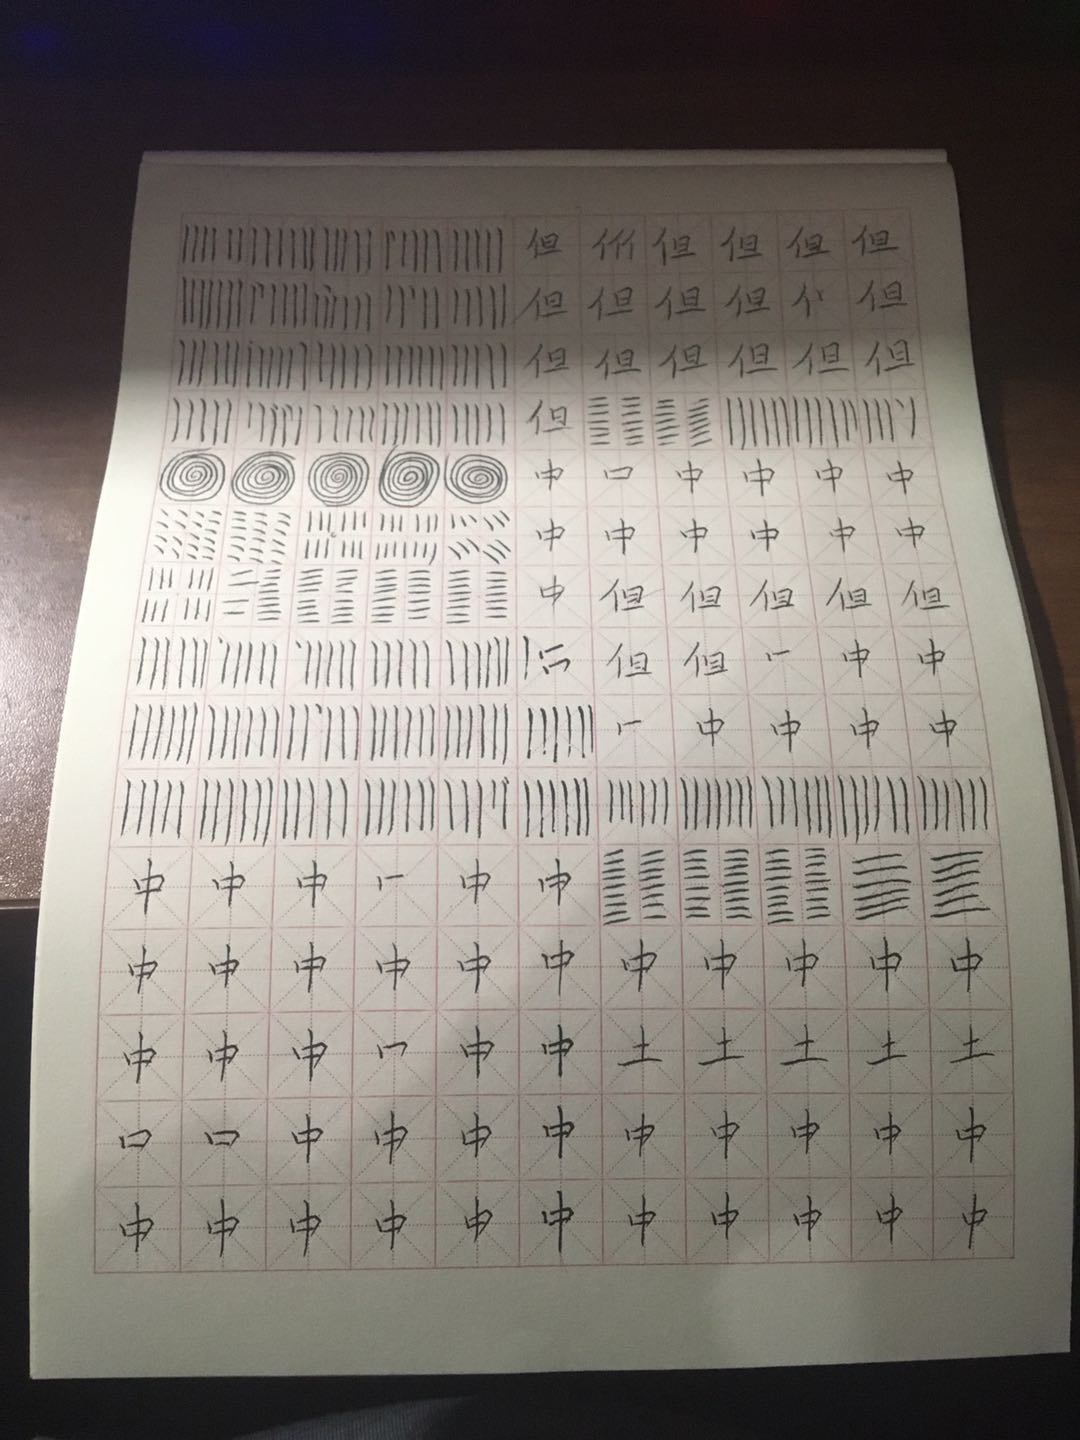 但 但 但 但 但 但
但 但 但 但 亻 但
但 但 但 但 但 但
但
中 口 中 中 中 中
中 中 中 中 中 中
中 但 但 但 但 但
但 但 中 中
中 中 中 中
中 中 中 中 中
中 中 中 中 中 中 中 中 中 中 中
中 中 中 中 中 土 土 土 土 土
口 口 中 中 中 中 中 中 中 中 中
中 中 中 中 中 中 中 中 中 中 中